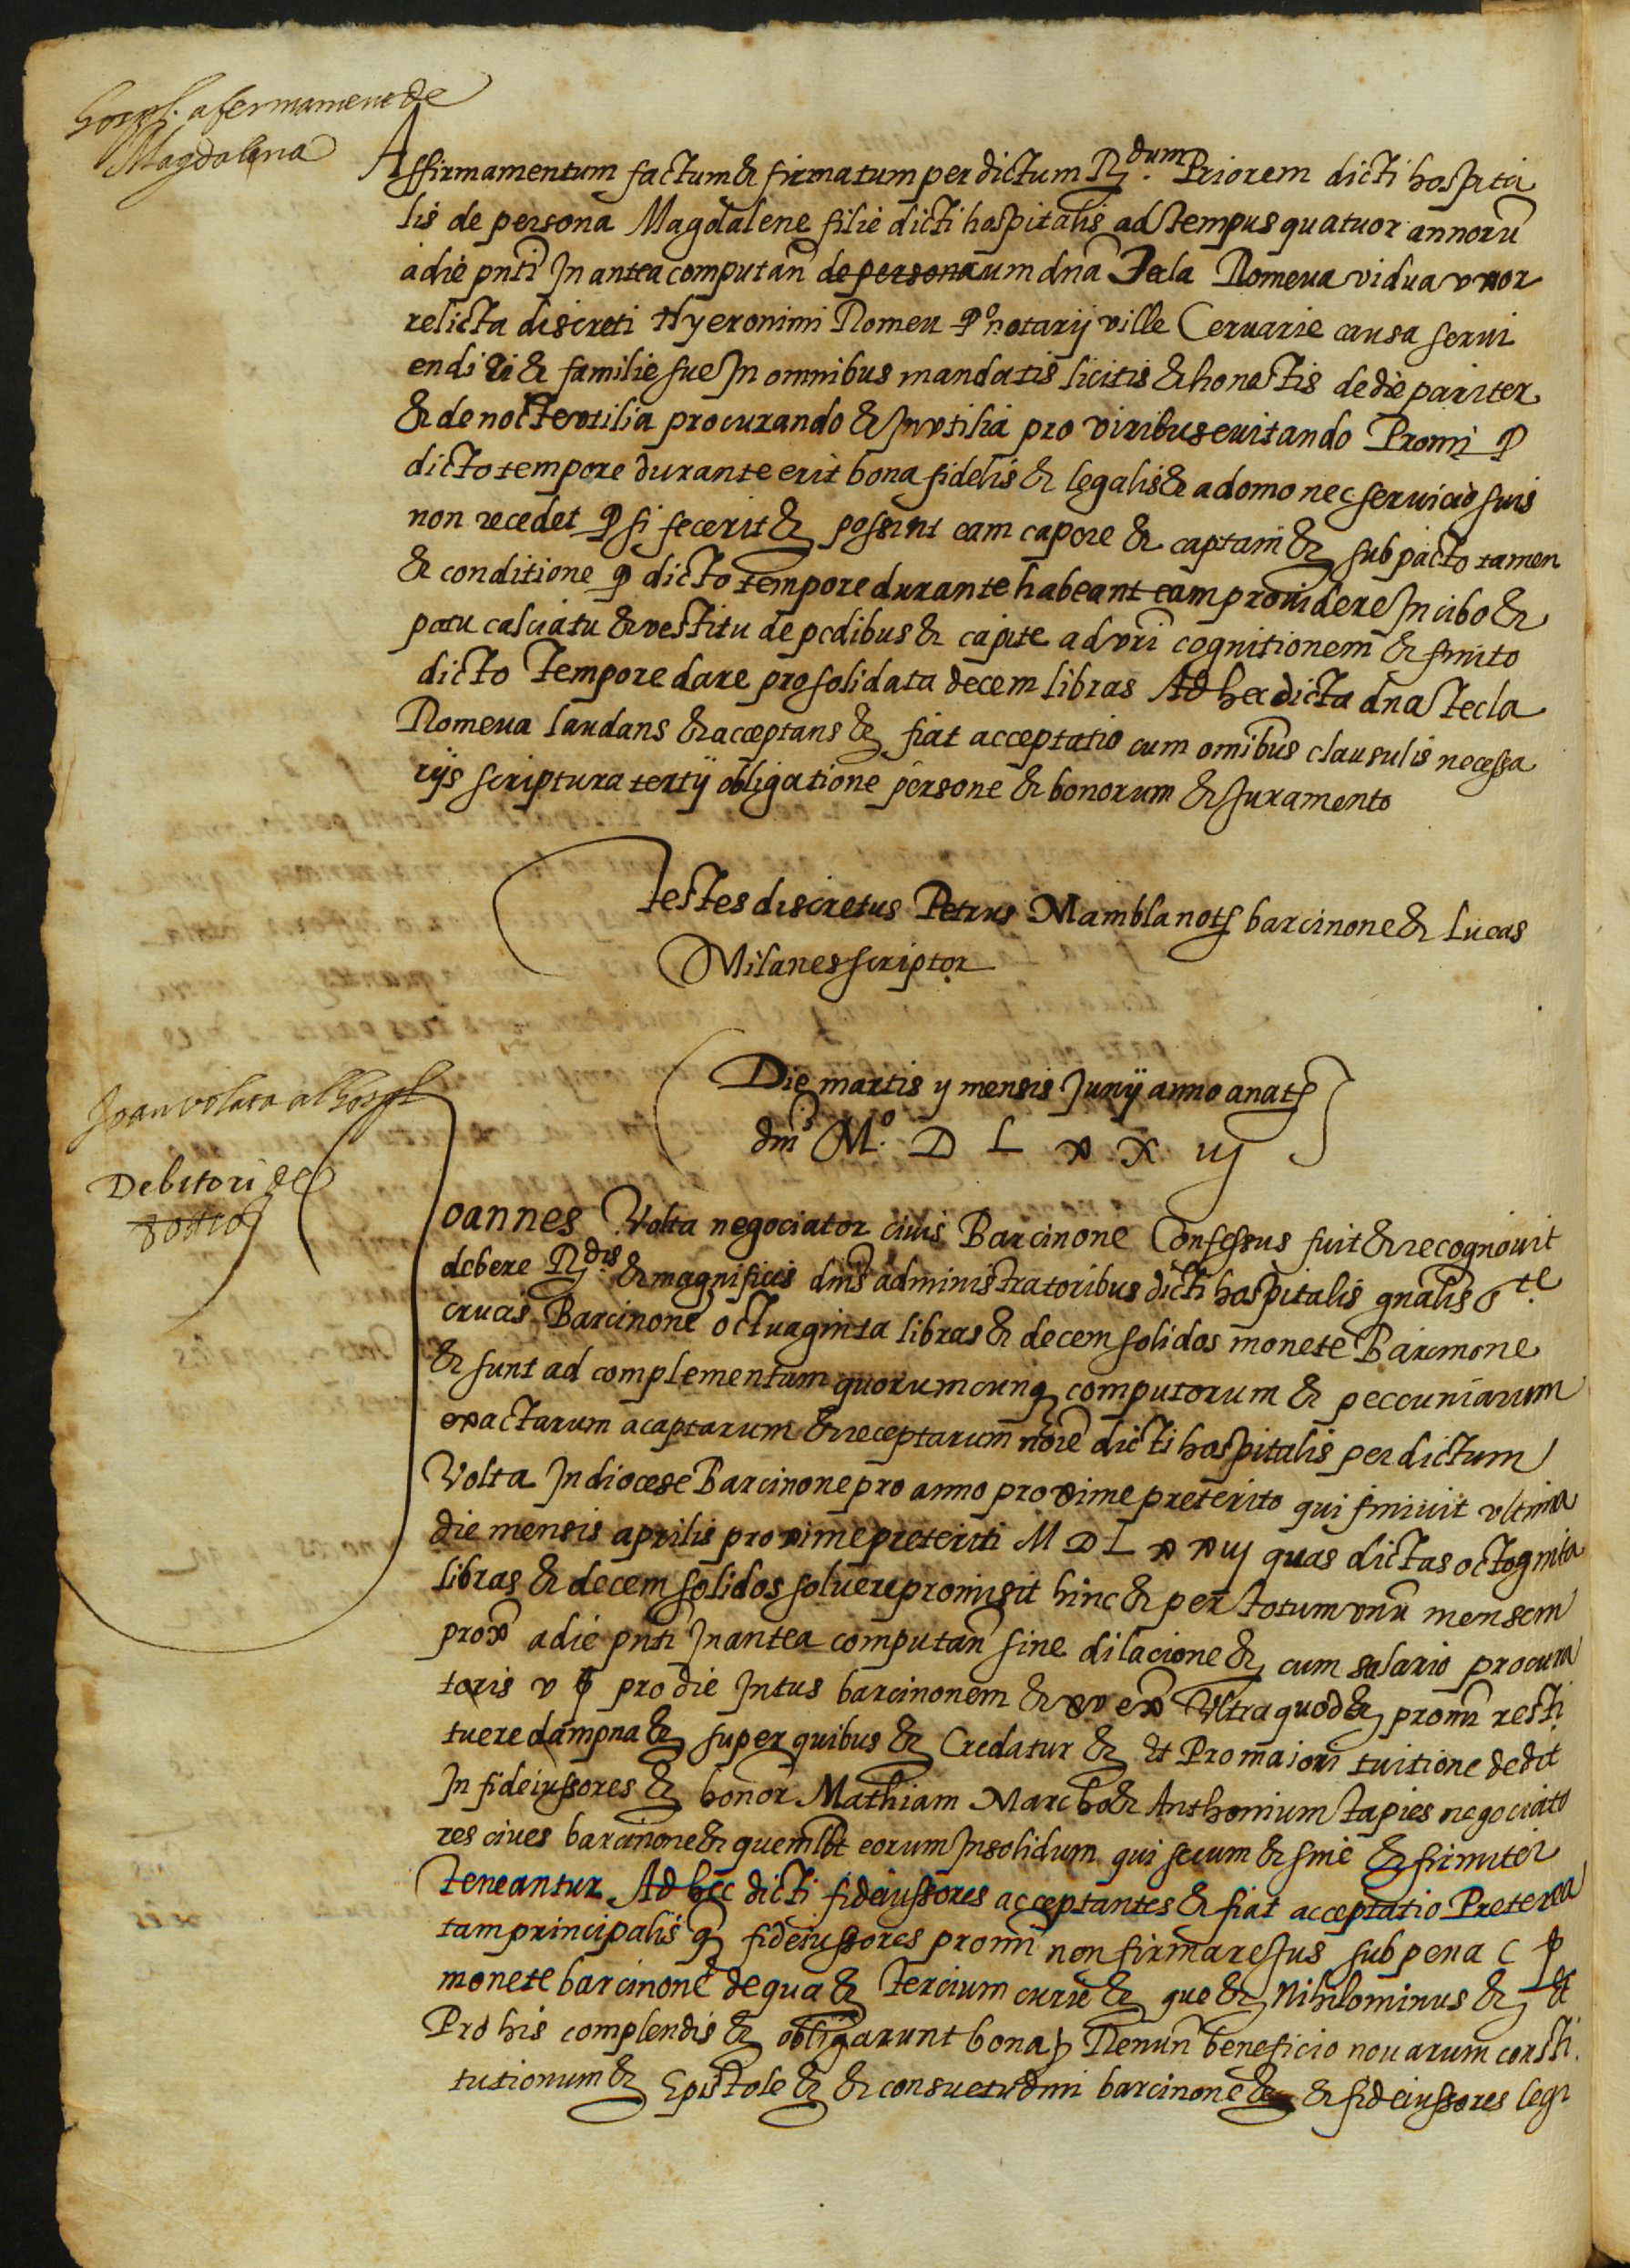 hospl. afermament de
Magdalena
Affirmamentum factum & firmatum per dictum R.dum Priorem dicti hospita
lis de persona Magdalene filie dicti hospitalis ad tempus quatuor annorũ
a die pnti In antea computañ de persona cum dña Tecla Romeua vidua vxor
relicta discreti Hyeronimi Romeu qº notarij ville Ceruarie causa serui
endi ei & familie sue In omnibus mandatis licitis & honestis de die pariter
& de nocte vtilia procurando & Invtilia pro viribus euitando Promĩ q
dicto tempore durante erit bona fidelis & legalis & a domo nec seruicio suis
non recedet q si fecerit & possint eam capere & captam & sub pacto tamen
& conditione q dicto tempore durante habeant eam prouidere In cibo &
potu calciatu & vestitu de pedibus & capite ad vri cognitionem & finito
dicto tempore dare pro solidata decem libras Ad hec dicta dna Tecla
Romeua laudans & acceptans & fiat acceptatio cum omibus clausulis necessa
rijs scriptura tertij obligatione persone & bonorum & Juramento
Testes discretus Petrus Mambla nots barcinone & Lucas
Milanes scriptor
Die martis ij mensis Junij anno a nate
dni Mº. D L x x iij
Joan volta al hospl
Debitori de
Joannes Volta negociator ciuis Barcinone Confessus fuit & recognouit
debere R.dis & magnificis dnis administratoribus dicti hospitalis gnalis S.te
crucis Barcinone octuaginta libras & decem solidos monete Barcinone
& sunt ad complementum quorumcunq computorum & peccuniarum
exactarum acaptarum & receptarum noie dicti hospitalis per dictum
Volta In diocese Barcinone pro anno proxime preterito qui finiuit vltima
die mensis aprilis proxime preteriti M D L x x iij quas dictas octoginta
libras & decem solidos soluere promisit hinc & per totum vnũ mensem
prox a die pnti In antea computañ sine dilacione & cum salario procura
toris v s pro die Intus barcinonem & x v ex Vltra quod & promĩ resti
tuere dampna & super quibus & Credatur & Et Pro maiori tuitione dedit
In fideiussores & bonor Mathiam Marc bo & Anthonium Tapies negociato
res ciues barcinone & quemlbt eorum Insolidum qui secum & sine & firmiter
teneantur Ad hec dicti fideiussores acceptantes & fiat acceptatio Preterea
tam principalis q fideiussores promĩ non firmare Jus sub pena c s
monete barcinone de qua & Tercium curie & que & Nihilominus & Et
Pro his complendis & obligarunt bona Renunĩ beneficio nouarum consti
tutionum & Epistole & & consuetudini barcinone & & fideiussores legi